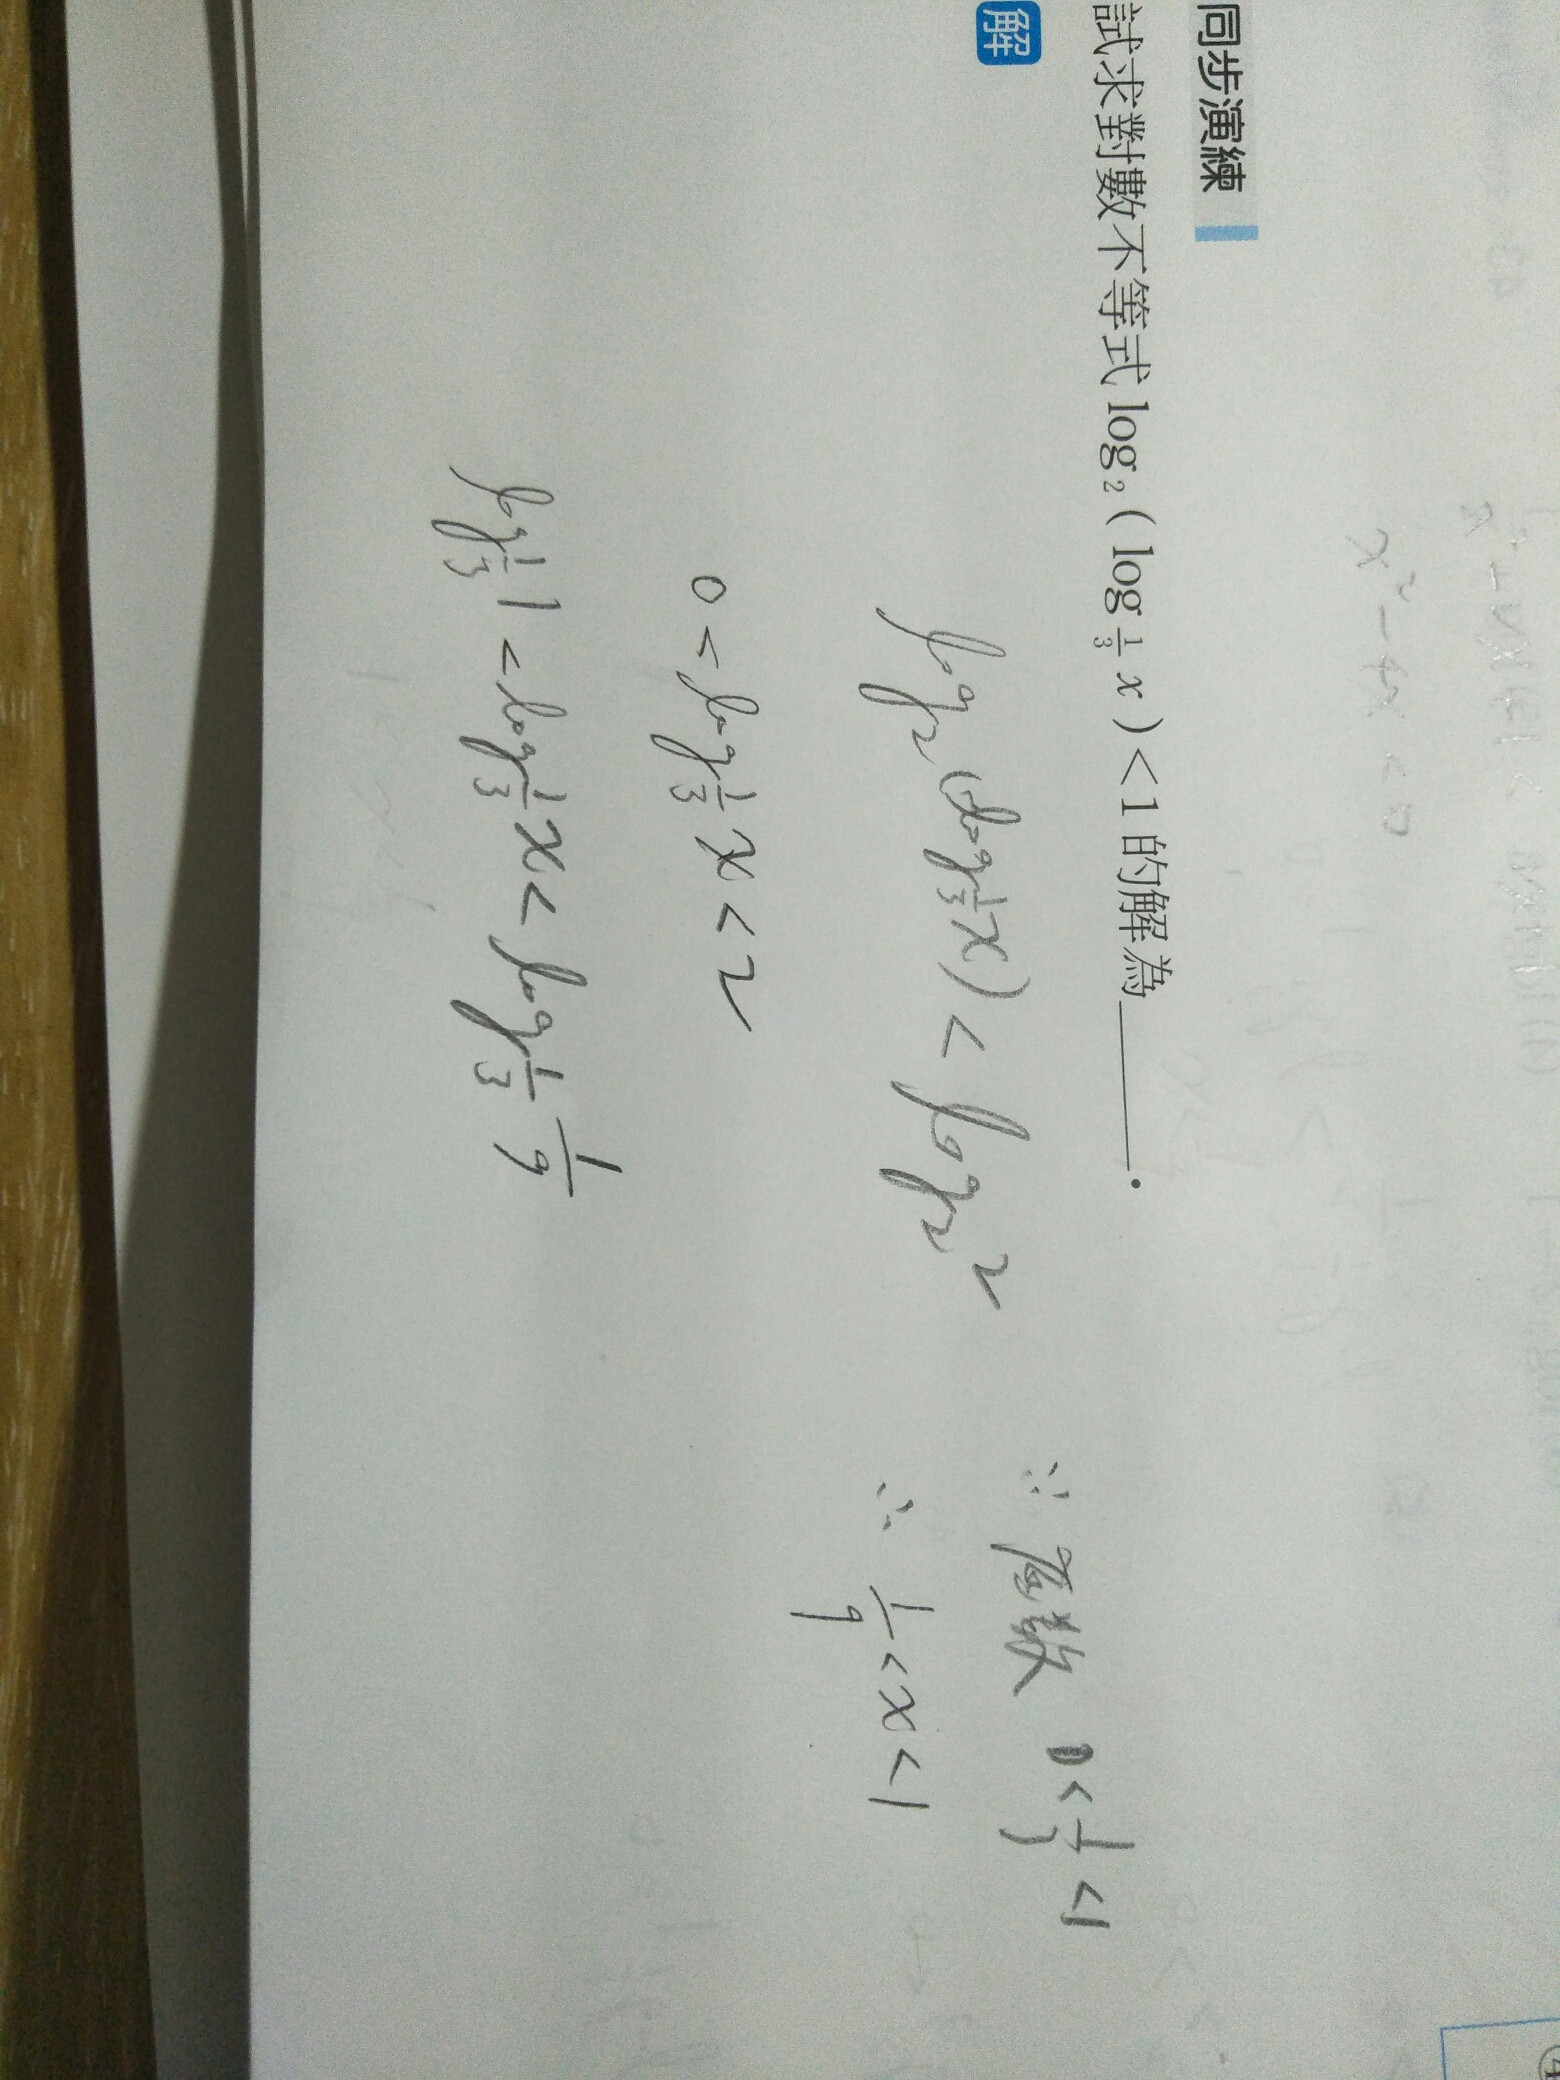 同步演練
試求對數不等式 log₂ ( log_{1/3} x ) < 1 的解為______.
解
log₂ (log_{1/3} x) < log₂ 2
0 < log_{1/3} x < 2
log_{1/3} 1 < log_{1/3} x < log_{1/3} 1/9
∵ 底数 0 < 1/3 < 1
∴ 1/9 < x < 1
x² - 4x < 0
4